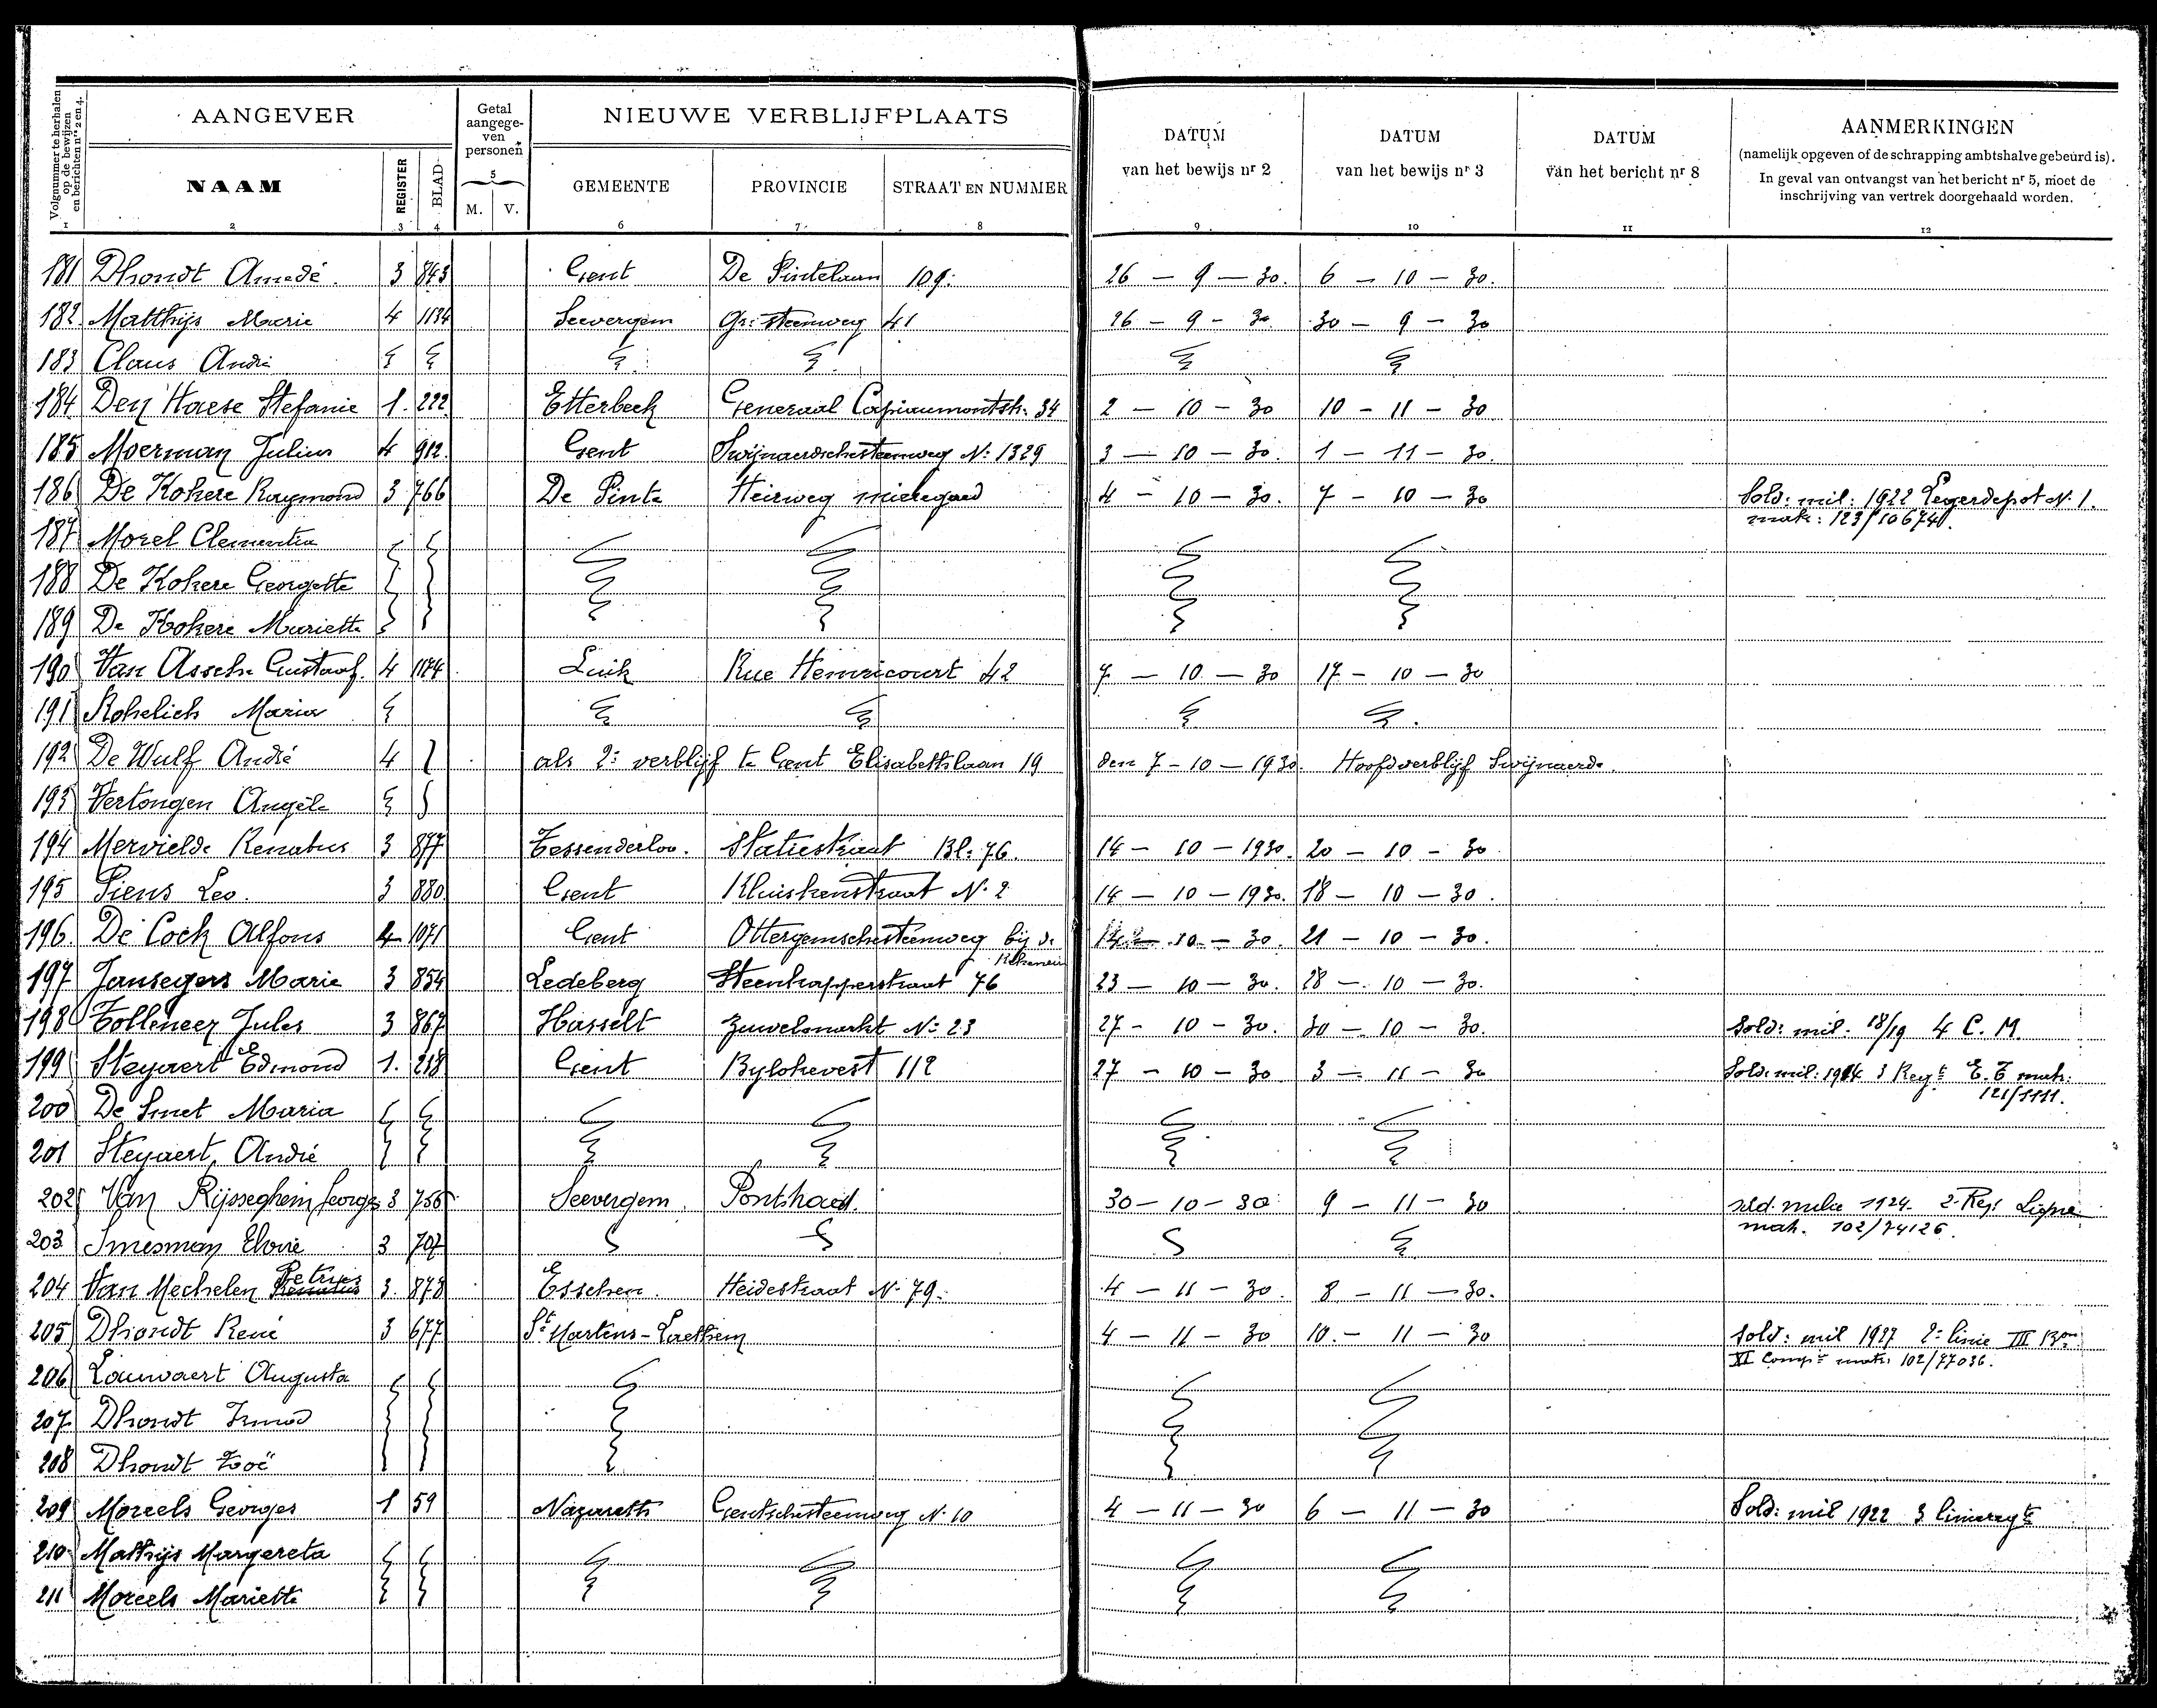 Volgnummer te herhalen op de bewijzen en berichten nrs 2 en 4.
AANGEVER
Getal aangege- ven personen
NIEUWE VERBLIJFPLAATS
DATUM van het bewijs nr 2
DATUM van het bewijs nr 3
DATUM van het bericht nr 8
AANMERKINGEN
(namelijk opgeven of de schrapping ambtshalve gebeurd is).
In geval van ontvangst van het bericht nr 5, moet de
inschrijving van vertrek doorgehaald worden.
NAAM REGISTER BLAD M. V. GEMEENTE PROVINCIE STRAAT EN NUMMER
1 2 3 4 5 6 7 8 9 10 11 12
181 Dhondt Amedé. 3 843 Gent De Pintelaan 109. 26 — 9 — 30. 6 — 10 — 30.
182 Matthijs Marie 4 1134 Seevergem Gr: steenweg 41 26 — 9 — 30 30 — 9 — 30
183 Claus André
184 Den Haese Stefanie 1. 222 Etterbeek Generaal Capiaumontstr. 34 2 — 10 — 30 10 — 11 — 30
185 Moerman Julius 4 912. Gent Swijnaerdschesteenweg N: 1329 3 — 10 — 30. 1 — 11 — 30.
186 De Kokere Raymond 3 766 De Pinte Heirweg 4 — 10 — 30. 7 — 10 — 30 Sold: mil: 1922 Legerdepot N. 1.
matr: 123/10674.
187 Morel Clementia
188 De Kokere Georgette
189 De Kokere Mariette
190 Van Assche Gustaaf. 4 1174 Luik Rue Hemricourt 42 7 — 10 — 30 17 — 10 — 30
191 Kohelich Maria
192 De Wulf André 4 als 2: verblijf te Gent Elisabethlaan 19 den 7 — 10 — 1930. Hoofdverblijf Swijnaerde.
193 Vertongen Angèle
194 Mervielde Renatus 3 877 Tessenderloo. Statiestraat Bl: 76. 14 — 10 — 1930. 20 — 10 — 30
195 Piens Leo. 3 880. Gent Kluiskenstraat N. 2 14 — 10 — 1930. 18 — 10 — 30.
196. De Cock Alfons 4 1071 Gent Ottergemschesteenweg bij de 10 — 30. 21 — 10 — 30.
197 Jansegers Marie 3 854 Ledeberg Steenkapperstraat 76 23 — 10 — 30. 28 — 10 — 30.
198 Tolleneer Jules 3 867 Hasselt Zuivelmarkt N: 23 27 — 10 — 30. 30 — 10 — 30. Sold: mil. 18/19 4 C. M.
199 Steyaert Edmond 1. 218 Gent Bylokevest 112 27 — 10 — 30 3 — 11 — 30 Sold: mil: 1914 3 Regt E. T matr:
121/1111.
200 De Smet Maria
201 Steyaert André
202 Van Rijsseghem Georges 3 756 Seevergem. Ponthoed. 30 — 10 — 30 9 — 11 — 30 sold. milice 1924. 2 Reg: Ligne
mat. 102/74126.
203 Smesman Elvire 3 707
204 Van Mechelen Petrus 3. 878 Esschen. Heidestraat N. 79. 4 — 11 — 30. 8 — 11 — 30.
205 Dhondt René 3 677 St Martens-Laethem 4 — 11 — 30 10. — 11 — 30 Sold: mil 1927 2: linie III Bon
XI Compie matr: 102/77036.
206 Lauwaert Augusta
207 Dhondt Irmad
208 Dhondt Zoë
209 Moreels Georges 1 59 Nazareth Gentschesteenweg N. 10 4 — 11 — 30 6 — 11 — 30 Sold: mil 1922 3 linieregt
210 Matthijs Margereta
211 Moreels Mariette